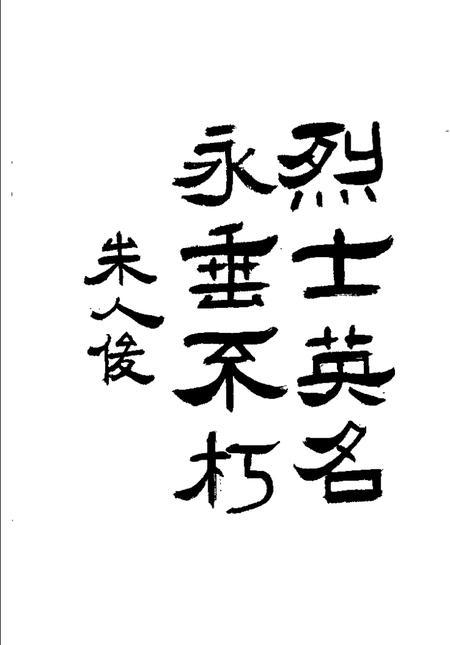 烈士英名
永垂不朽
朱人俊